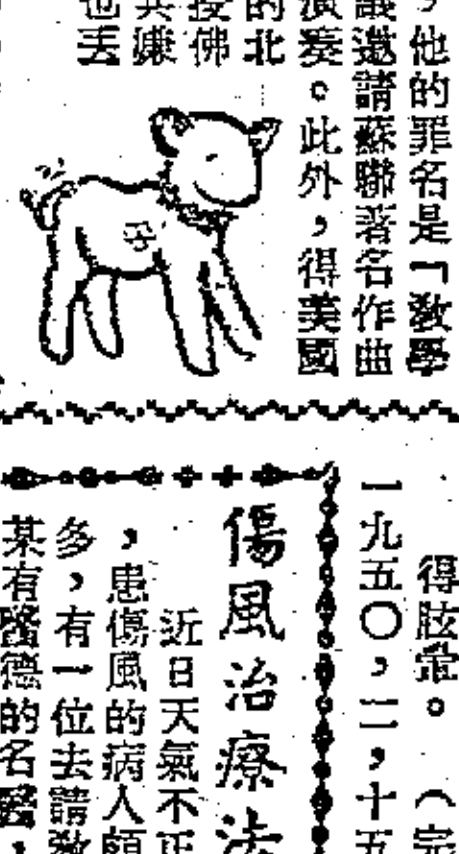 ，他的罪名是「敎學
議邀請蘇聯著名作曲
演奏。此外，得美國
的北
授佛
其嫌
也丟
得眩暈。（完
一九五〇，二，十五
傷風治療法
近日天氣不正
，患傷風的病人頗
多，有一位去請敎
某有醫德的名醫，